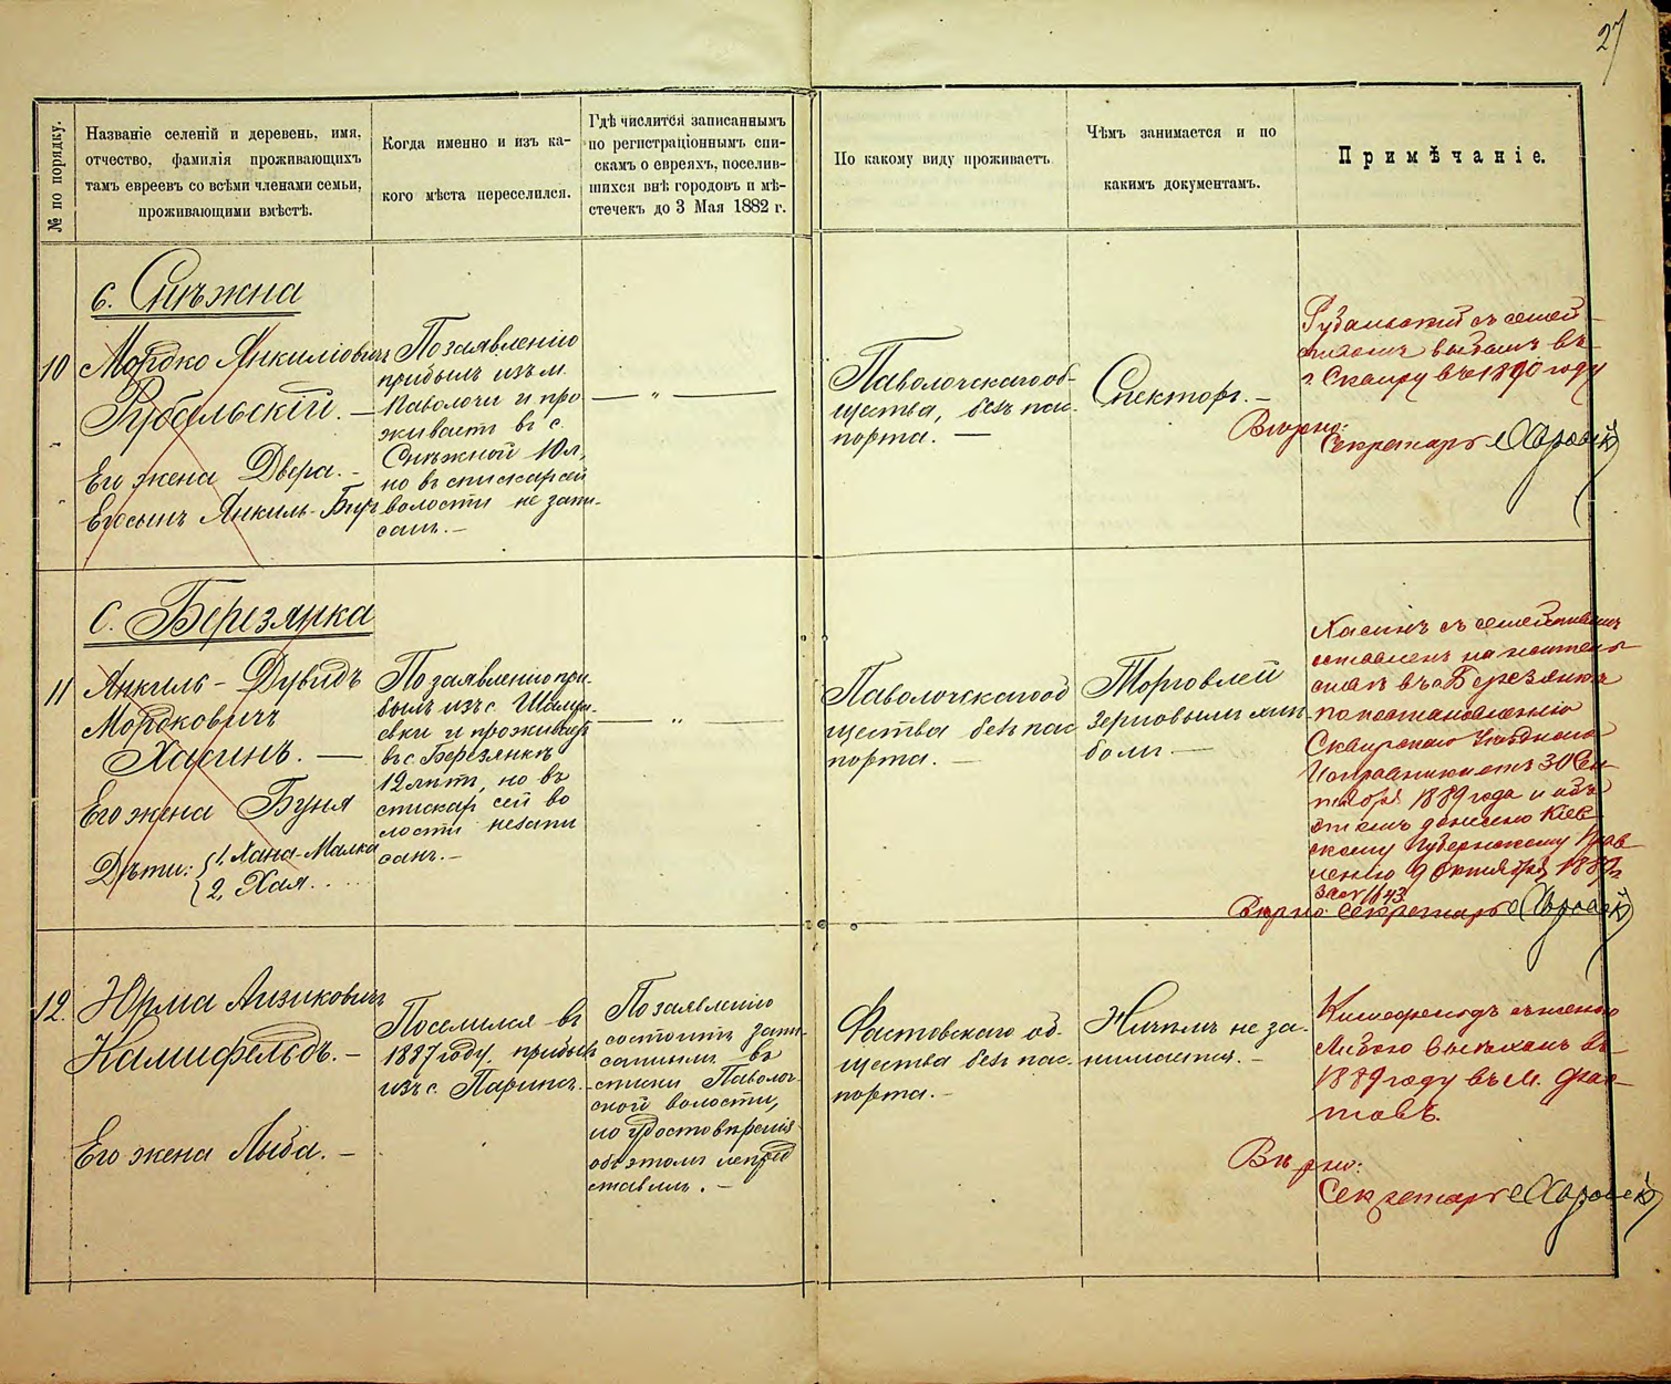 27
№ по порядку.
Названіе селеній и деревень, имя,
отчество, фамилія проживающихъ
тамъ евреевъ со всѣми членами семьи,
проживающими вмѣстѣ.
Когда именно и изъ ка-
кого мѣста переселился.
Гдѣ числится записаннымъ
по регистраціоннымъ спи-
скамъ о евреяхъ, поселив-
шихся внѣ городовъ и мѣ-
стечекъ до 3 Мая 1882 г.
По какому виду проживаетъ
Чѣмъ занимается и по
какимъ документамъ.
Примѣчаніе.
с. Снѣжна
10
Мордко Янкиліовичъ
Рубальскій. —
Его жена Двера. -
Его сынъ Янкиль-Беръ
По заявленію
прибылъ изъ м.
Паволочи и про
живаетъ въ с.
Снѣжной 10 л,
но въ спискахъ сей
волости не запи-
санъ. —
— „ —
Паволочскаго об-
щества, безъ пас-
порта. —
Спекторъ. —
Рубальскій съ семей-
ствомъ выбылъ въ
г. Сквиру въ 1890 году
Вѣрно:
Секретарь
С. Березянка
11
Янкиль - Дувидъ
Мордковичъ
Хасинъ. —
Его жена Буня
Дѣти: 1. Хана-Малка
2, Хая. . . . .
По заявленію при-
былъ изъ с. Шамра-
евки и проживаетъ
въ с Березянкѣ
12 лѣтъ, но въ
спискахъ сей во
лости незапи
санъ. —
— „ —
Паволочскаго об
щества безъ пас
порта. —
Торговлей
зерновымъ хлѣ-
бомъ —
Хасинъ съ семействомъ
оставленъ на житель-
ствѣ въ с Березянкѣ
по постановленію
Сквирскаго Уѣзднаго
Исправника отъ 30 Сен-
тября 1889 года и объ
этомъ донесено Кіев
скому Губернскому Прав
ленію 9 Октября 1889 г
за №
Вѣрно: Секретарь
12.
Юрма Аизиковичъ
Камшфельдъ. —
Его жена Лыба. —
Поселился въ
1887 году, прибылъ
изъ с. Парипсъ.
По заявленію
состоитъ запи-
саннымъ въ
списки Паволоч-
ской волости,
но удостовѣренія
объ этомъ непред
ставилъ. —
Фастовскаго об-
щества безъ пас-
порта. —
Ничѣмъ не за-
нимается. —
съ женою
Лыбою выѣхалъ въ
1889 году въ м. Фас-
товъ.
Вѣрно:
Секретарь